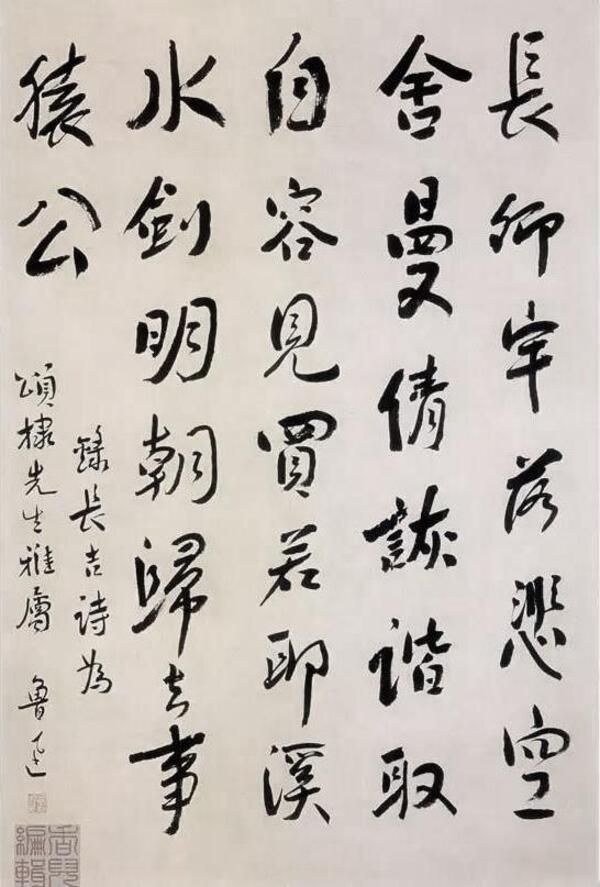 長卿牢落悲空
舍曼倩詼諧取
自容見買若耶溪
水劍明朝歸去事
猿公
錄長吉詩為
頌棣先生雅屬 魯迅
編輯